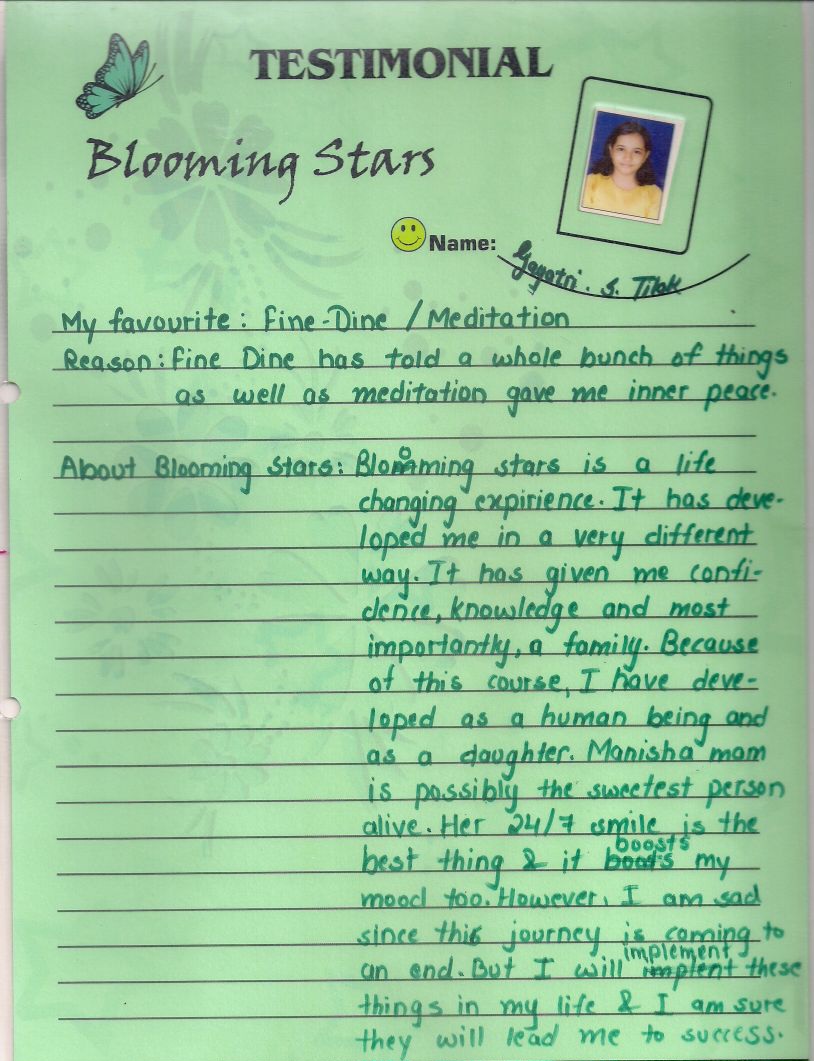 TESTIMONIAL
Blooming Stars
Name: Gayatri. S. Tilak
My favourite: Fine-Dine / Meditation
Reason: Fine Dine has told a whole bunch of things
as well as meditation gave me inner peace.
About Blooming Stars: Blooming stars is a life
changing expirience. It has deve-
loped me in a very different
way. It has given me confi-
dence, knowledge and most
importantly, a family. Because
of this course, I have deve-
loped as a human being and
as a daughter. Manisha mam
is possibly the sweetest person
alive. Her 24/7 smile is the
best thing & it boosts my
mood too. However, I am sad
since this journey is coming to
an end. But I will implement these
things in my life & I am sure
they will lead me to success.